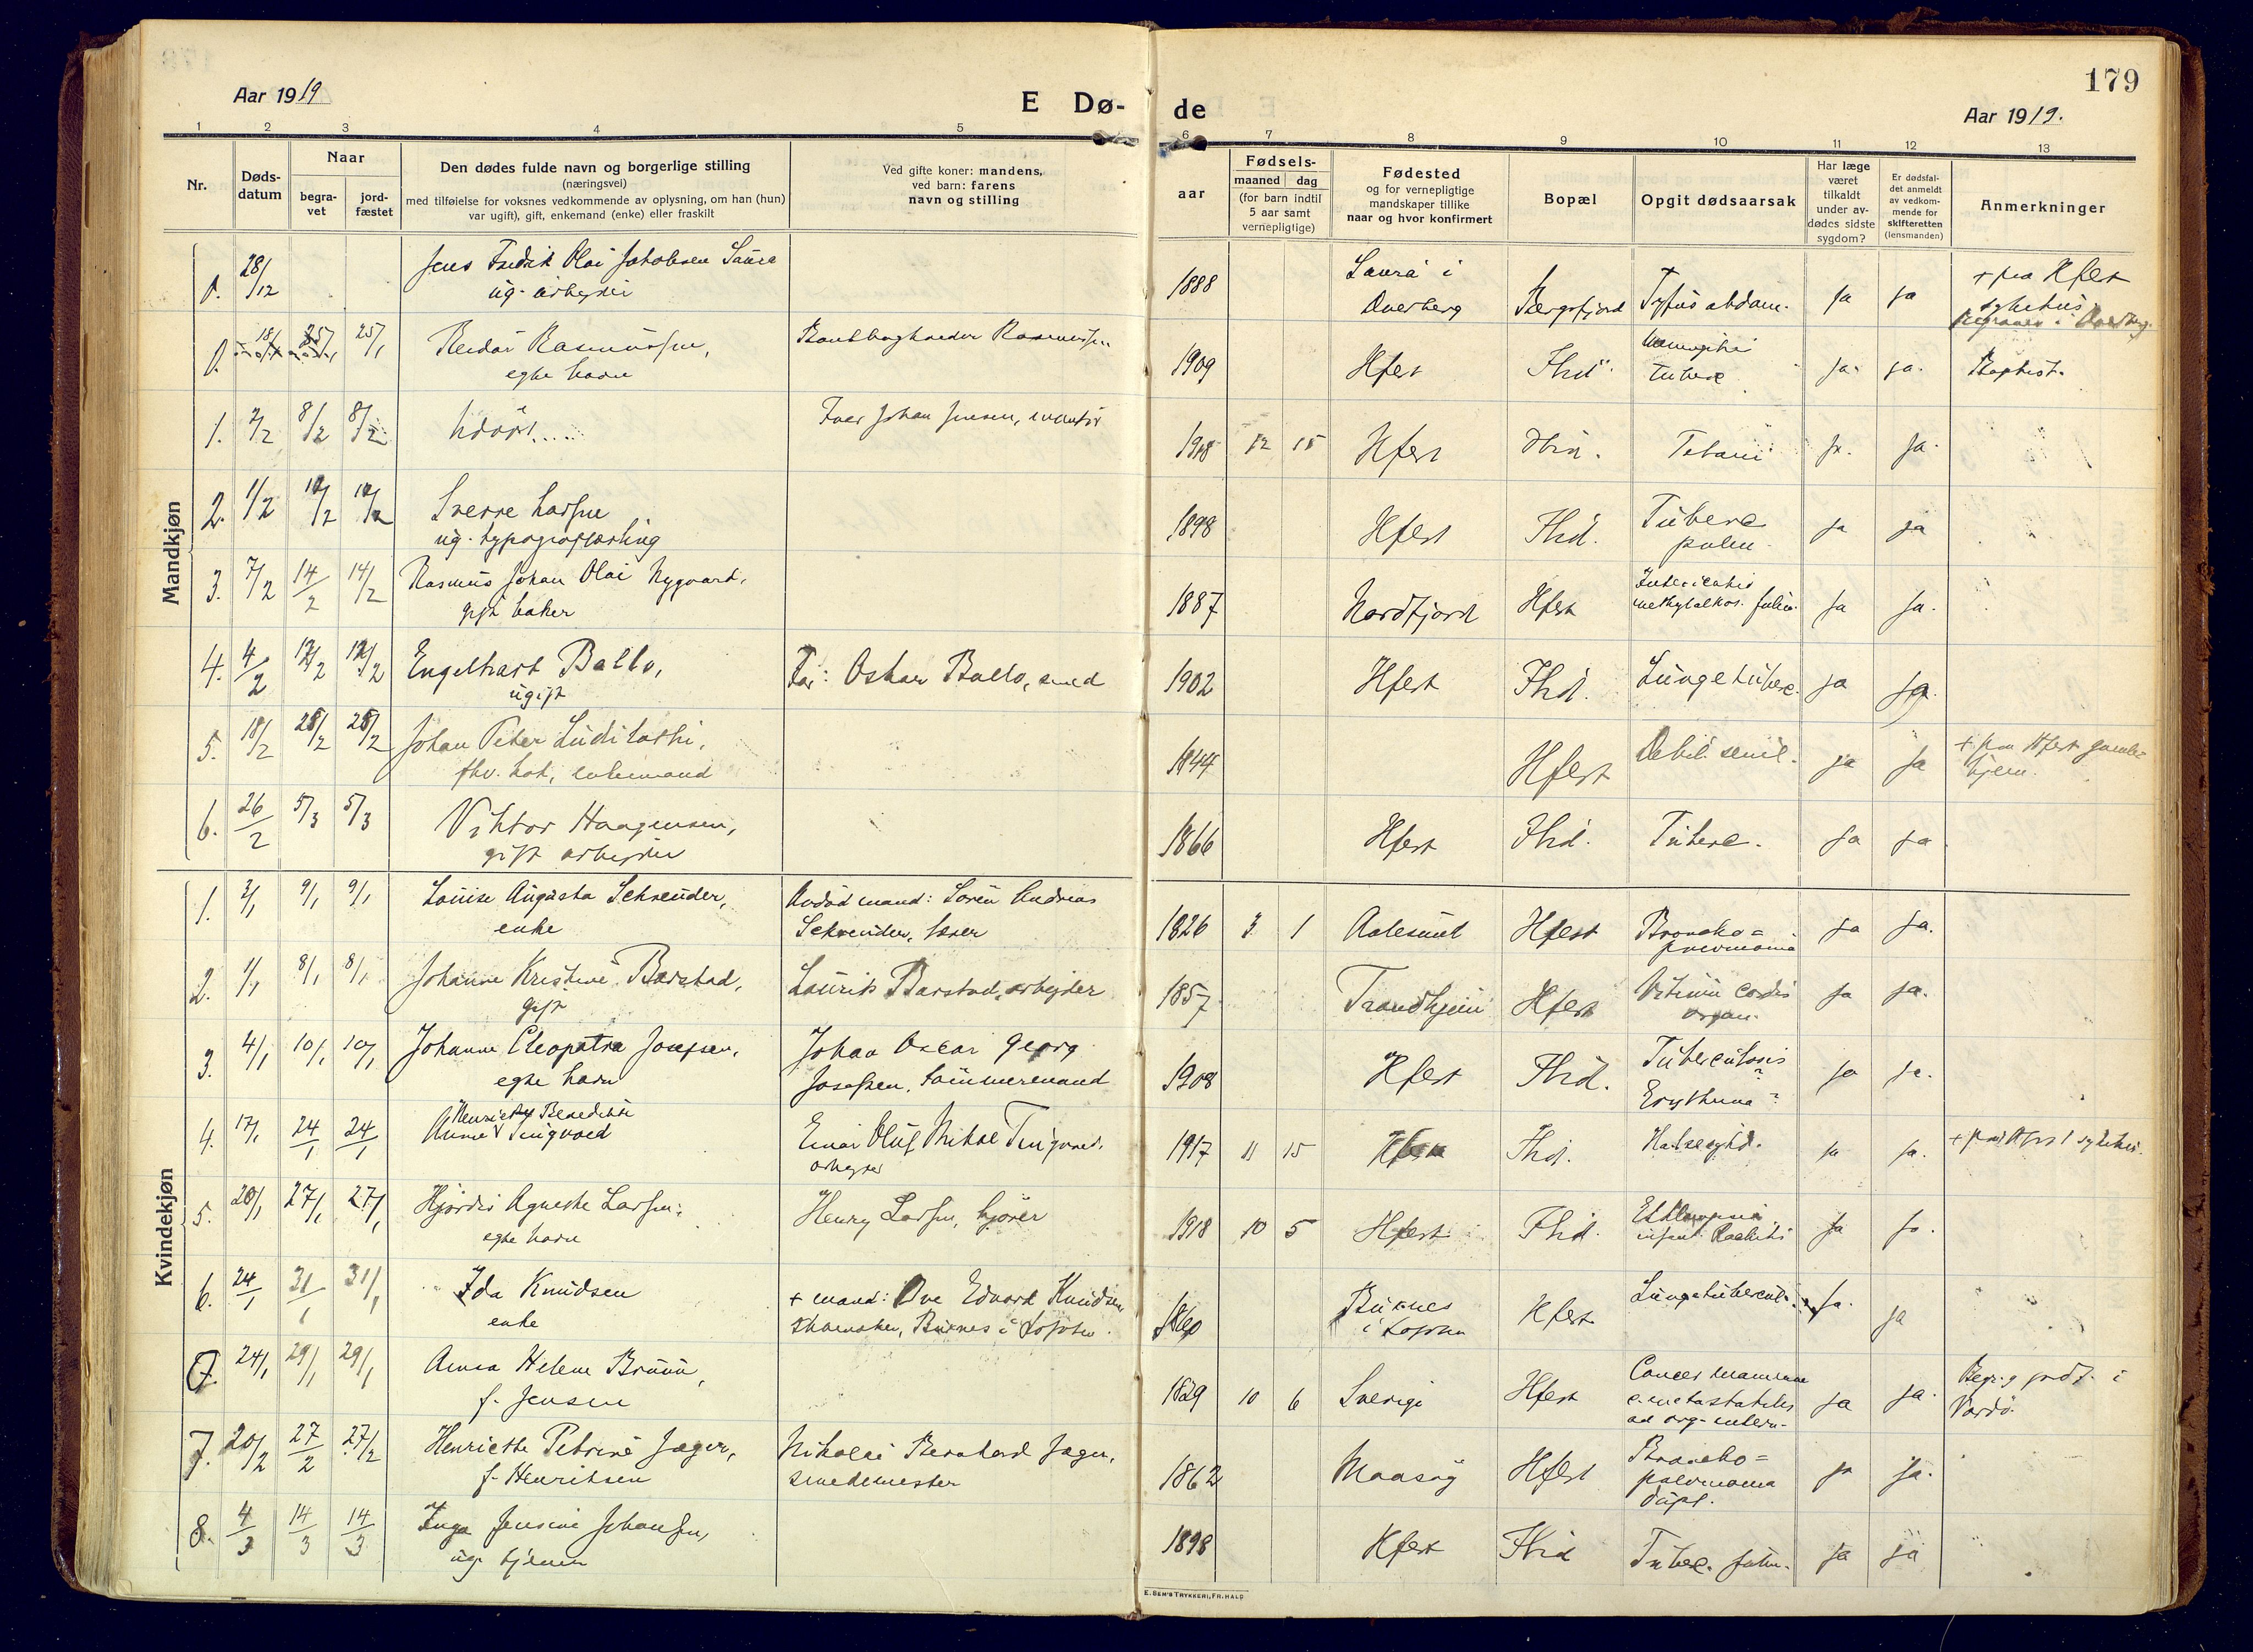 179
Aar 1919
E Dø-
de
Aar 1919.
1 2 3 4 5 6 7 8 9 10 11 12 13
Nr.
Døds-
datum
Naar
begra-
vet
jord-
fæstet
Den dødes fulde navn og borgerlige stilling
(næringsvei)
med tilføielse for voksnes vedkommende av oplysning, om han (hun)
var ugift), gift, enkemand (enke) eller fraskilt
Ved gifte koner: mandens,
ved barn: farens
navn og stilling
aar
Fødsels-
maaned dag
(for barn indtil
5 aar samt
vernepligtige)
Fødested
og for vernepligtige
mandskaper tillike
naar og hvor konfirmert
Bopæl
Opgit dødsaarsak
Har læge
været
tilkaldt
under av-
dødes sidste
sygdom?
Er dødsfal-
det anmeldt
av vedkom-
mende for
skifteretten
(lensmanden)
Anmerkninger
Mandkjøn
0. 28/12 Jens Fredrik Olai Jakobsen 1888 i Bergsfjord Tyfus abdom. ja ja + paa Hfest
ug. arbejder Øverberg sykehus
0. 18/1 25/1 25/1 Reidar Rasmussen, Rasmussen 1909 Hfest Ibid. tuberc. ja. ja. Baptist.
egte barn
1. 2/2 8/2 8/2 Udøpt..... Iver Johan Jensen, 1918 12 15 Hfest Ibid. Tetani ja. ja.
2. 1/2 10/2 10/2 Sverre Larsen 1898 Hfest Ibid. Tuberc. ja ja
ug. typograflærling pulm.
3. 7/2 14/2 14/2 Rasmus Johan Olai Nygaard, 1887 Nordfjord Hfest Intoxicatio ja ja.
gift baker methylalkoh.
4. 4/2 12/2 12/2 Engelhart Ballo, Far: Oskar Ballo, smed 1902 Hfest Ibid. Lungetuberc. ja ja.
ugift
5. 18/2 25/2 25/2 Johan Peter 1844 Hfest Debil. senil. ja ja + paa Hfest gamle-
fhv. kok, enkemand hjem.
6. 26/2 5/3 5/3 Viktor Haagensen, 1866 Hfest Ibid. Tuberc. ja ja
gift arbejder
Kvindekjøn
1. 3/1 9/1 9/1 Louise Augusta Schrøuder, Avdød mand: Søren Andreas 1826 3 1 Aalesund Hfest Broncho= ja ja.
enke pneumonia
2. 1/1 8/1 8/1 Johanne Kristine Barstad, Laurits Barstad, arbejder 1857 Trondhjem Hfest Vitium cordis ja ja.
gift organ.
3. 4/1 10/1 10/1 Johanne Cleopatra Josefsen, Johan Oscar Georg 1908 Hfest Ibid. Tuberculosis ja ja.
egte barn Josefsen, tømmermand Erythema?
4. 17/1 24/1 24/1 Henriette Benedikte
Anna Tingvold Einar Oluf Mikal Tingvold, 1917 11 15 Hfest Ibid. Halsesykd. ja ja. + paa Hfest sykehus.
arbejder
5. 20/1 27/1 27/1 Hjørdis Agnethe Larsen, Henry Larsen, kjører 1918 10 5 Hfest Ibid. Eklampsia ja ja.
egte barn infant. Rachitis
6. 24/1 31/1 31/1 Ida Knudsen + mand: Ove Edvard Knudsen 1860 Buknes Hfest Lungetubercul. ja. ja
enke skomaker, Buknes i Lofoten. i Lofoten
0. 24/1 29/1 29/1 Anna Helene Bruun, 1829 10 6 Sverige Hfest Cancer mammae ja ja. Begr. og jordf. i
f. Jensen c. metastatibus Vardø.
ad org. intern.
7. 20/2 27/2 27/2 Henriette Petrine Jæger, Nikolai Bernhard Jæger, 1862 Maasøy Hfest Broncho= ja ja.
f. Henriksen smedemester pneumonia
dupl.
8. 4/3 14/3 14/3 Inga Jensine Johansen, 1898 Hfest Ibid Tuberc. pulm. ja ja
ug. tjener
E. SEM'S TRYKKERI, FR.HALD